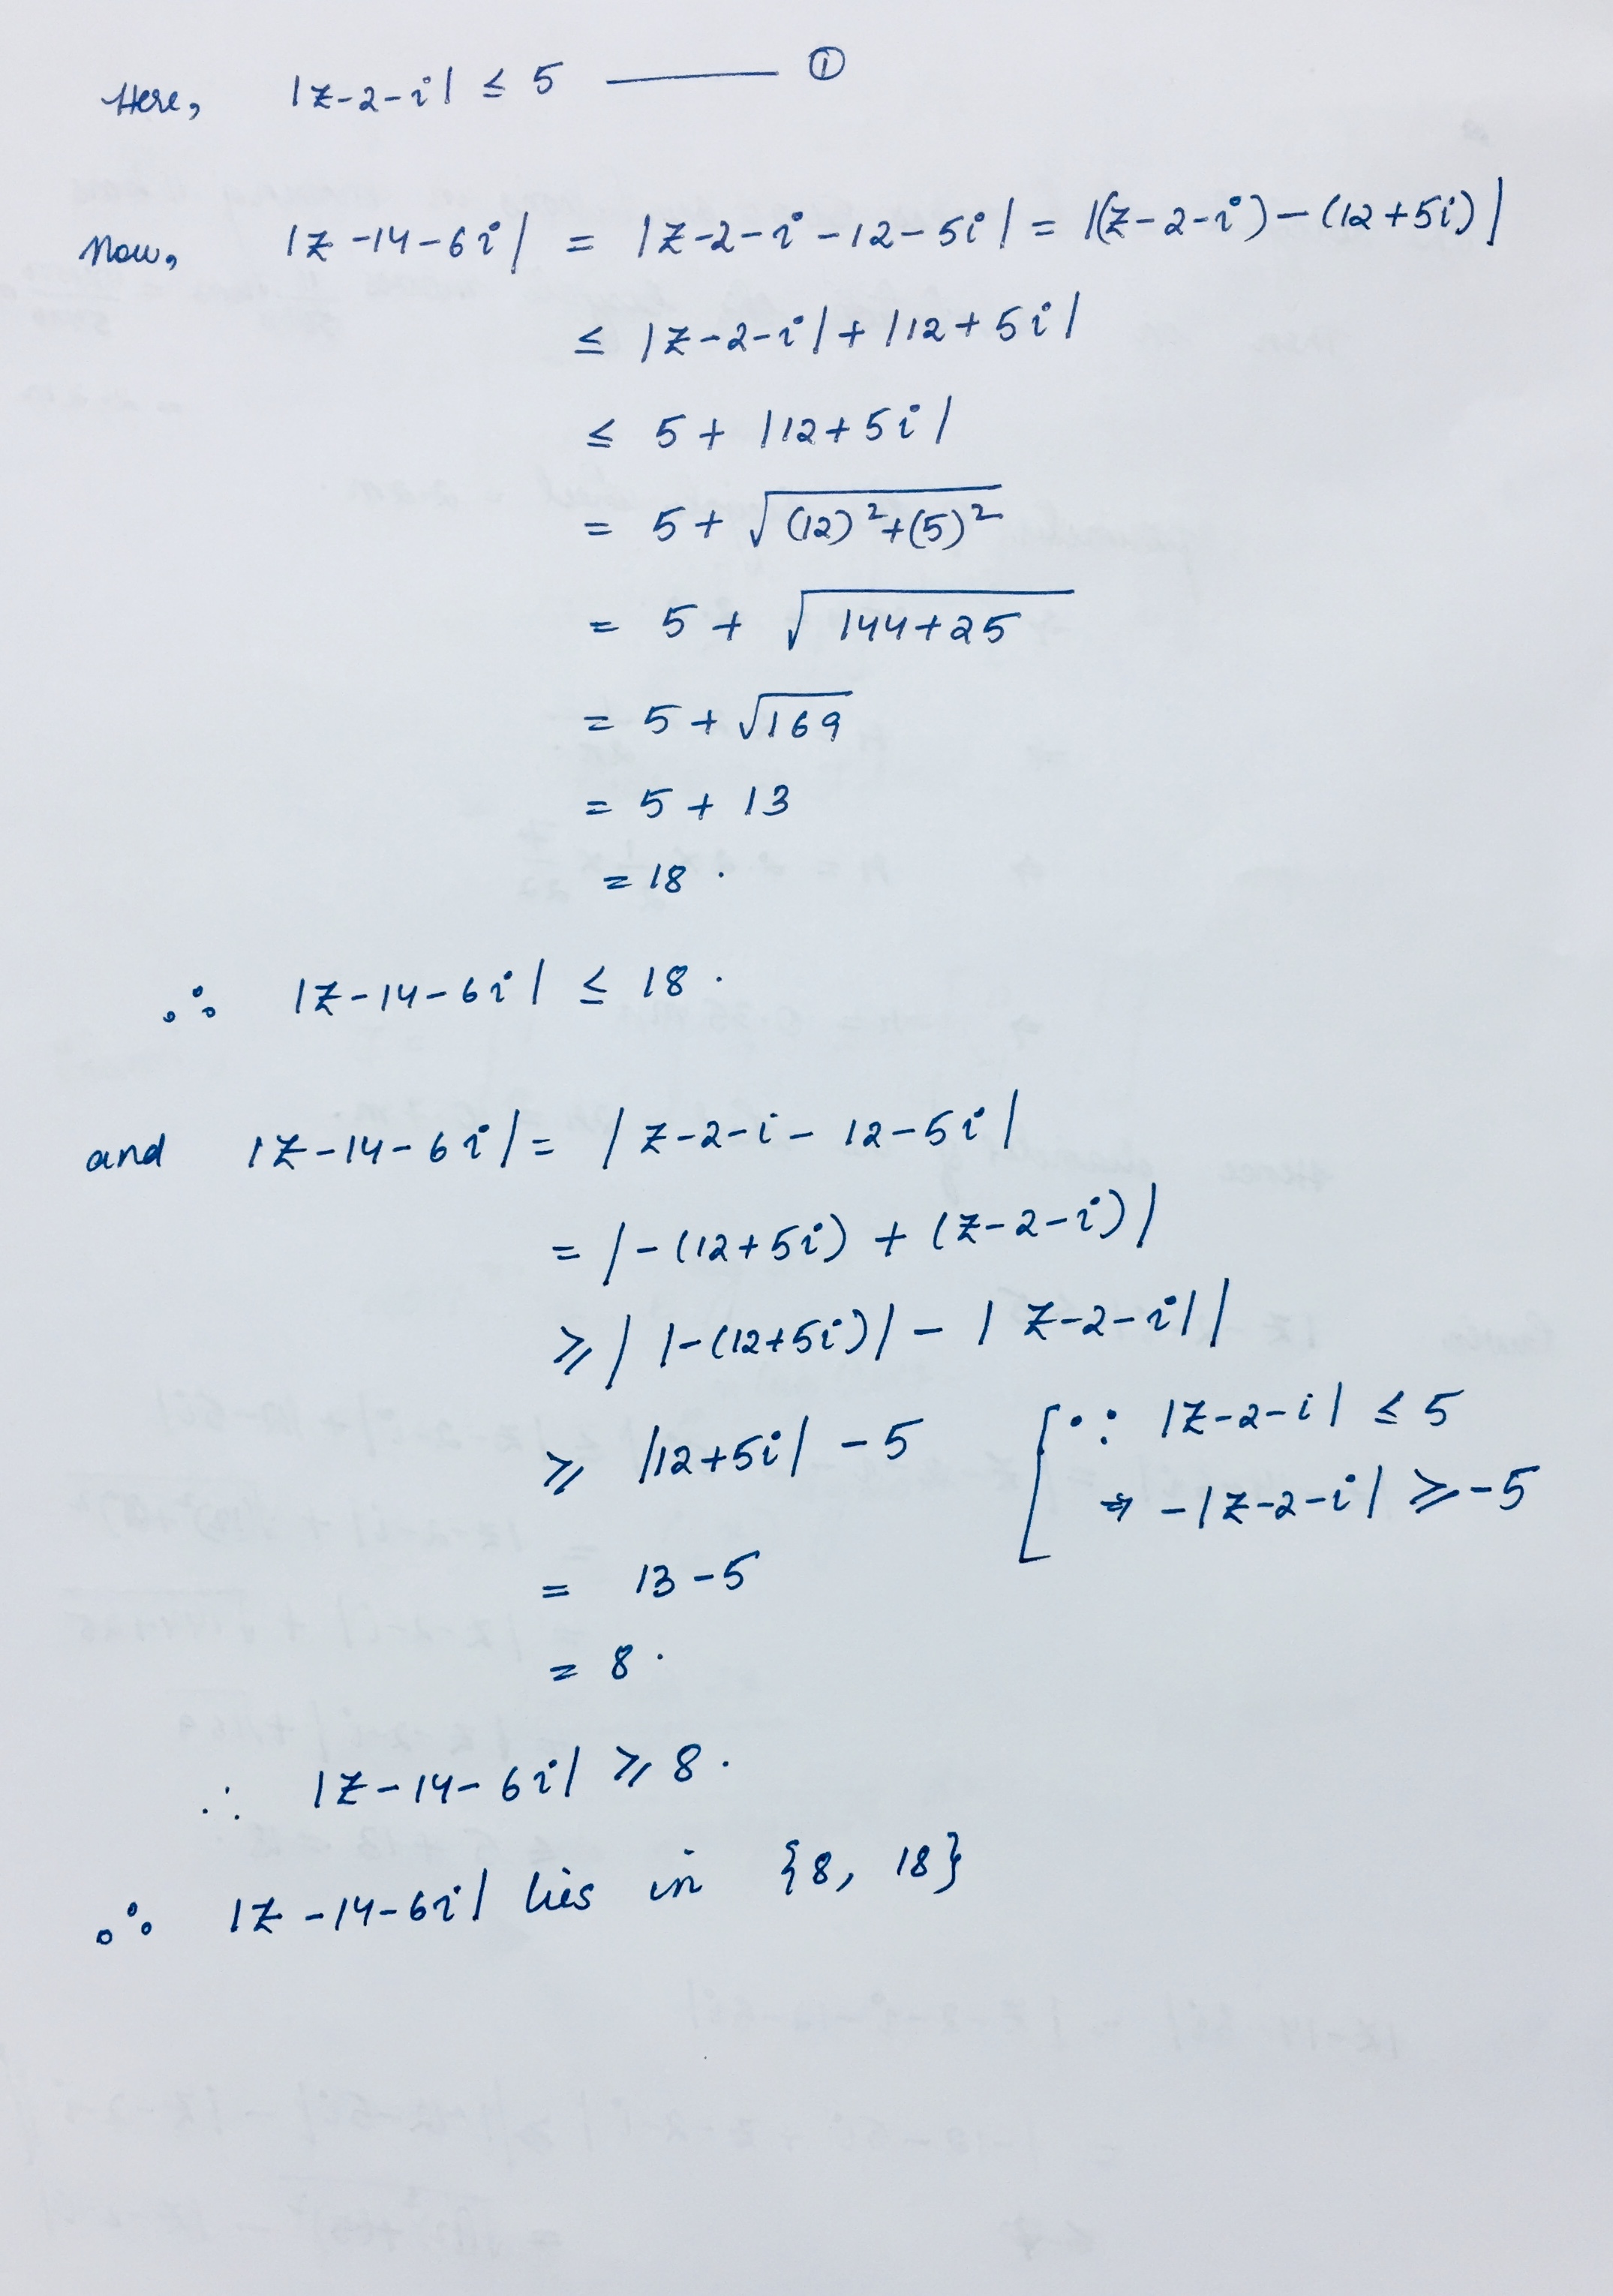 Here, |z-2-i| ≤ 5 ——— ①
Now, |z-14-6i| = |z-2-i-12-5i| = |(z-2-i)-(12+5i)|
≤ |z-2-i|+|12+5i|
≤ 5+|12+5i|
= 5+√((12)²+(5)²)
= 5+√(144+25)
= 5+√169
= 5+13
= 18.
∴ |z-14-6i| ≤ 18.
and |z-14-6i| = |z-2-i-12-5i|
= |-(12+5i)+(z-2-i)|
≥ ||-(12+5i)|-|z-2-i||
≥ |12+5i|-5 [∵ |z-2-i| ≤ 5
⇒ -|z-2-i| ≥ -5
= 13-5
= 8.
∴ |z-14-6i| ≥ 8.
∴ |z-14-6i| lies in {8, 18}